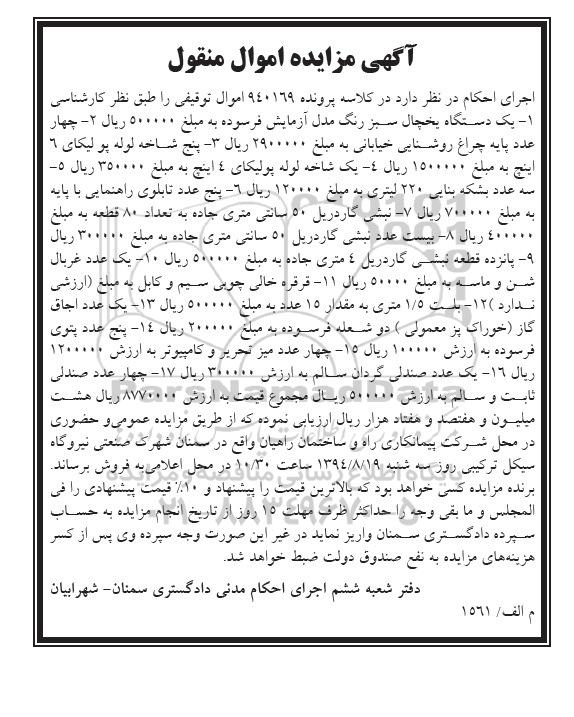 آگهی مزایده اموال منقول
اجرای احکام در نظر دارد در کلاسه پرونده ۹۴۰۱۶۹ اموال توقیفی را طبق نظر کارشناسی
۱- یک دستگاه یخچال سبز رنگ مدل آزمایش فرسوده به مبلغ ۵۰۰۰۰۰ ریال ۲- چهار
عدد پایه چراغ روشنایی خیابانی به مبلغ ۲۹۰۰۰۰۰ ریال ۳- پنج شاخه لوله پو لیکای ۶
اینچ به مبلغ ۱۵۰۰۰۰۰ ریال ۴- یک شاخه لوله پولیکای ۴ اینچ به مبلغ ۳۵۰۰۰۰ ریال ۵-
سه عدد بشکه بنایی ۲۲۰ لیتری به مبلغ ۱۲۰۰۰۰ ریال ۶- پنج عدد تابلوی راهنمایی با پایه
به مبلغ ۷۰۰۰۰۰ ریال ۷- نبشی گاردریل ۵۰ سانتی متری جاده به تعداد ۸۰ قطعه به مبلغ
۴۰۰۰۰۰ ریال ۸- بیست عدد نبشی گاردریل ۵۰ سانتی متری جاده به مبلغ ۳۰۰۰۰۰ ریال
۹- پانزده قطعه نبشی گاردریل ۴ متری جاده به مبلغ ۵۰۰۰۰۰ ریال ۱۰- یک عدد غربال
شن و ماسه به مبلغ ۵۰۰۰۰ ریال ۱۱- قرقره خالی چوبی سیم و کابل به مبلغ (ارزشی
ندارد )۱۲- بلت ۱/۵ متری به مقدار ۱۵ عدد به مبلغ ۵۰۰۰۰۰ ریال ۱۳- یک عدد اجاق
گاز (خوراک پز معمولی ) دو شعله فرسوده به مبلغ ۲۰۰۰۰۰ ریال ۱۴- پنج عدد پتوی
فرسوده به ارزش ۱۰۰۰۰۰ ریال ۱۵- چهار عدد میز تحریر و کامپیوتر به ارزش ۱۲۰۰۰۰۰
ریال ۱۶- یک عدد صندلی گردان سالم به ارزش ۳۰۰۰۰۰ ریال ۱۷- چهار عدد صندلی
ثابت و سالم به ارزش ۵۰۰۰۰۰ ریال مجموع قیمت به ارزش ۸۷۷۰۰۰۰ ریال هشت
میلیون و هفتصد و هفتاد هزار ریال ارزیابی نموده که از طریق مزایده عمومی‌و حضوری
در محل شرکت پیمانکاری راه و ساختمان راهیان واقع در سمنان شهرک صنعتی نیروگاه
سیکل ترکیبی روز سه شنبه ۱۳۹۴/۸/۱۹ ساعت ۱۰/۳۰ در محل اعلامی‌به فروش برساند.
برنده مزایده کسی خواهد بود که بالاترین قیمت را پیشنهاد و ۱۰٪ قیمت پیشنهادی را فی
المجلس و ما بقی وجه را حداکثر ظرف مهلت ۱۵ روز از تاریخ انجام مزایده به حساب
سپرده دادگستری سمنان واریز نماید در غیر این صورت وجه سپرده وی پس از کسر
هزینه‌های مزایده به نفع صندوق دولت ضبط خواهد شد.
دفتر شعبه ششم اجرای احکام مدنی دادگستری سمنان- شهرابیان
م الف/ ۱۵۶۱